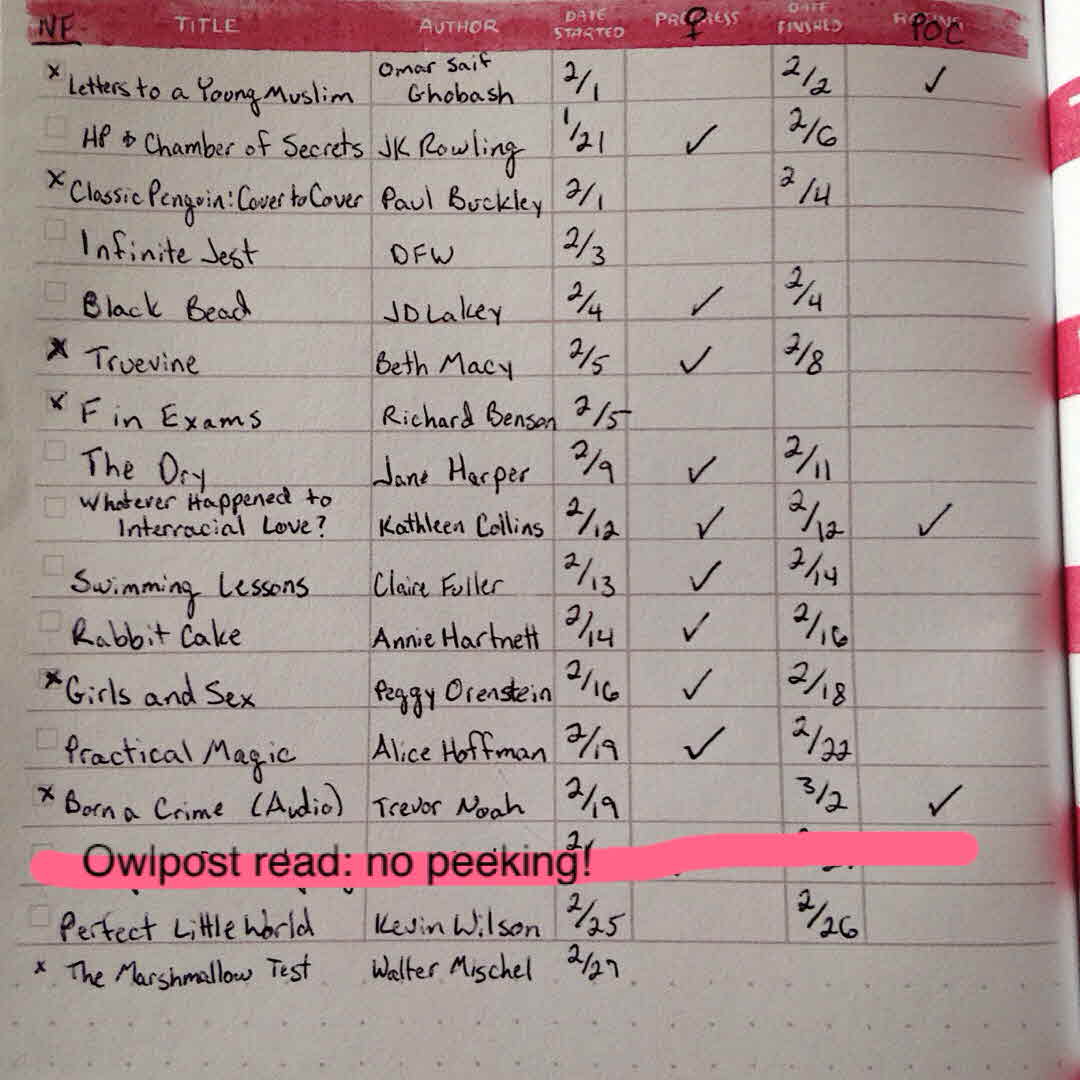 NF TITLE AUTHOR DATE STARTED PROGRESS ♀ DATE FINISHED RATING POC
x Letters to a Young Muslim Omar Saif Ghobash 2/1 2/2 ✓
HP & Chamber of Secrets JK Rowling 1/21 ✓ 2/6
x Classic Penguin: Cover to Cover Paul Buckley 2/1 2/4
Infinite Jest DFW 2/3
Black Bead JD Lakey 2/4 ✓ 2/4
x Truevine Beth Macy 2/5 ✓ 2/8
x F in Exams Richard Benson 2/5
The Dry Jane Harper 2/9 ✓ 2/11
Whatever Happened to Interracial Love? Kathleen Collins 2/12 ✓ 2/12 ✓
Swimming Lessons Claire Fuller 2/13 ✓ 2/14
Rabbit Cake Annie Hartnett 2/14 ✓ 2/16
x Girls and Sex Peggy Orenstein 2/16 ✓ 2/18
Practical Magic Alice Hoffman 2/19 ✓ 2/22
x Born a Crime (Audio) Trevor Noah 2/19 3/2 ✓
Owlpost read: no peeking!
Perfect Little World Kevin Wilson 2/25 2/26
x The Marshmallow Test Walter Mischel 2/27